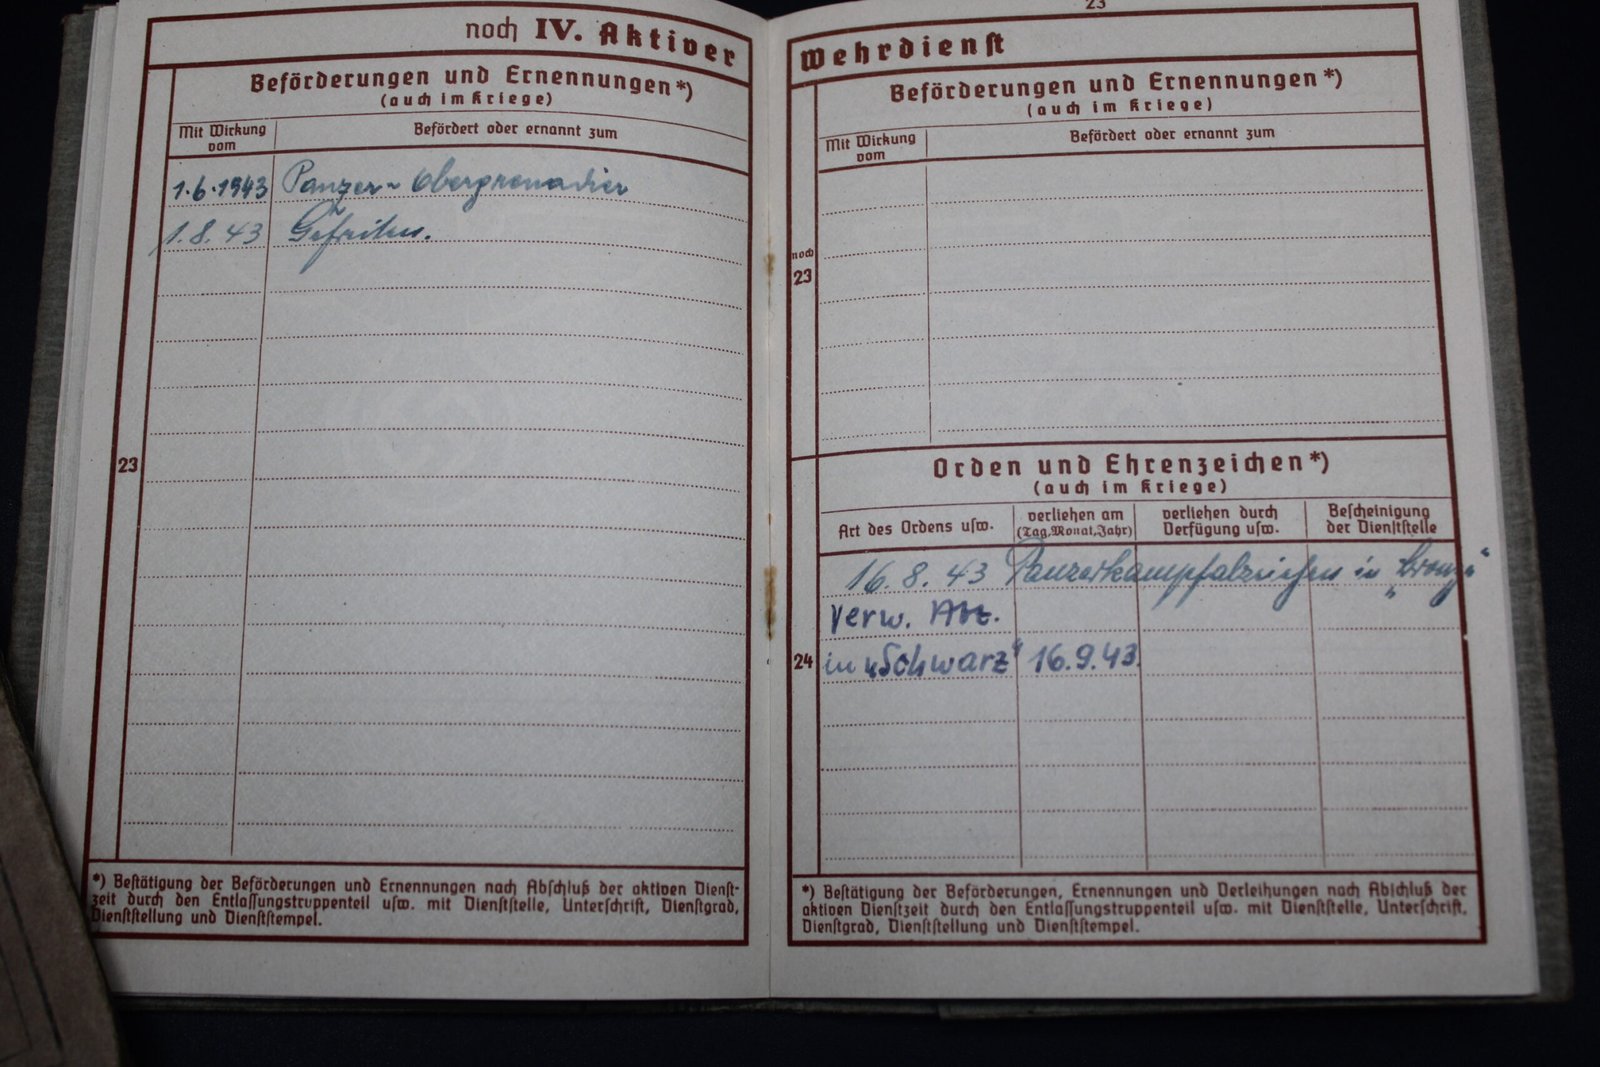 noch IV. Aktiver
Beförderungen und Ernennungen*)
(auch im Kriege)
Mit Wirkung
vom
Befördert oder ernannt zum
1.6.1943 Panzer-Obergrenadier
1.8.43 Gefreiten.
23
*) Bestätigung der Beförderungen und Ernennungen nach Abschluß der aktiven Dienst-
zeit durch den Entlassungstruppenteil usw. mit Dienststelle, Unterschrift, Dienstgrad,
Dienststellung und Dienststempel.
23
Wehrdienst
Beförderungen und Ernennungen*)
(auch im Kriege)
Mit Wirkung
vom
Befördert oder ernannt zum
noch
23
Orden und Ehrenzeichen*)
(auch im Kriege)
Art des Ordens usw.
verliehen am
(Tag, Monat, Jahr)
verliehen durch
Verfügung usw.
Bescheinigung
der Dienststelle
16.8.43 Panzerkampfabzeichen in „Bronze“
Verw. Abz.
in „Schwarz“ 16.9.43.
24
*) Bestätigung der Beförderungen, Ernennungen und Verleihungen nach Abschluß der
aktiven Dienstzeit durch den Entlassungstruppenteil usw. mit Dienststelle, Unterschrift,
Dienstgrad, Dienststellung und Dienststempel.